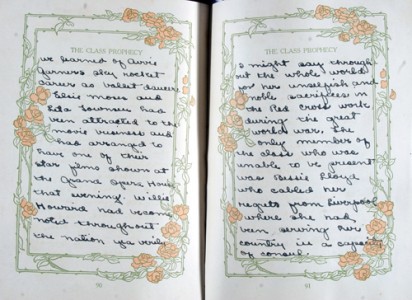 THE CLASS PROPHECY
we learned of Avvis
Turners sky rocket
career as ballet dancer
Elsie Moses and
Lounsen had
been attracted to the
movie business and
had arranged to
have one of their
star films shown at
the Grand Opera House
that evening. Willie
Howard had become
noted throughout
the nation yea verily
90
THE CLASS PROPHECY
I might say through
out the whole world
for her unselfish and
noble sacrifices in
the Red Cross work
during the great
world war. The
only member of
the class who was
unable to be present
was Bessie Lloyd
who cabled her
regrets from Liverpool
where she had
been serving her
country in a capacity
of consul.
91